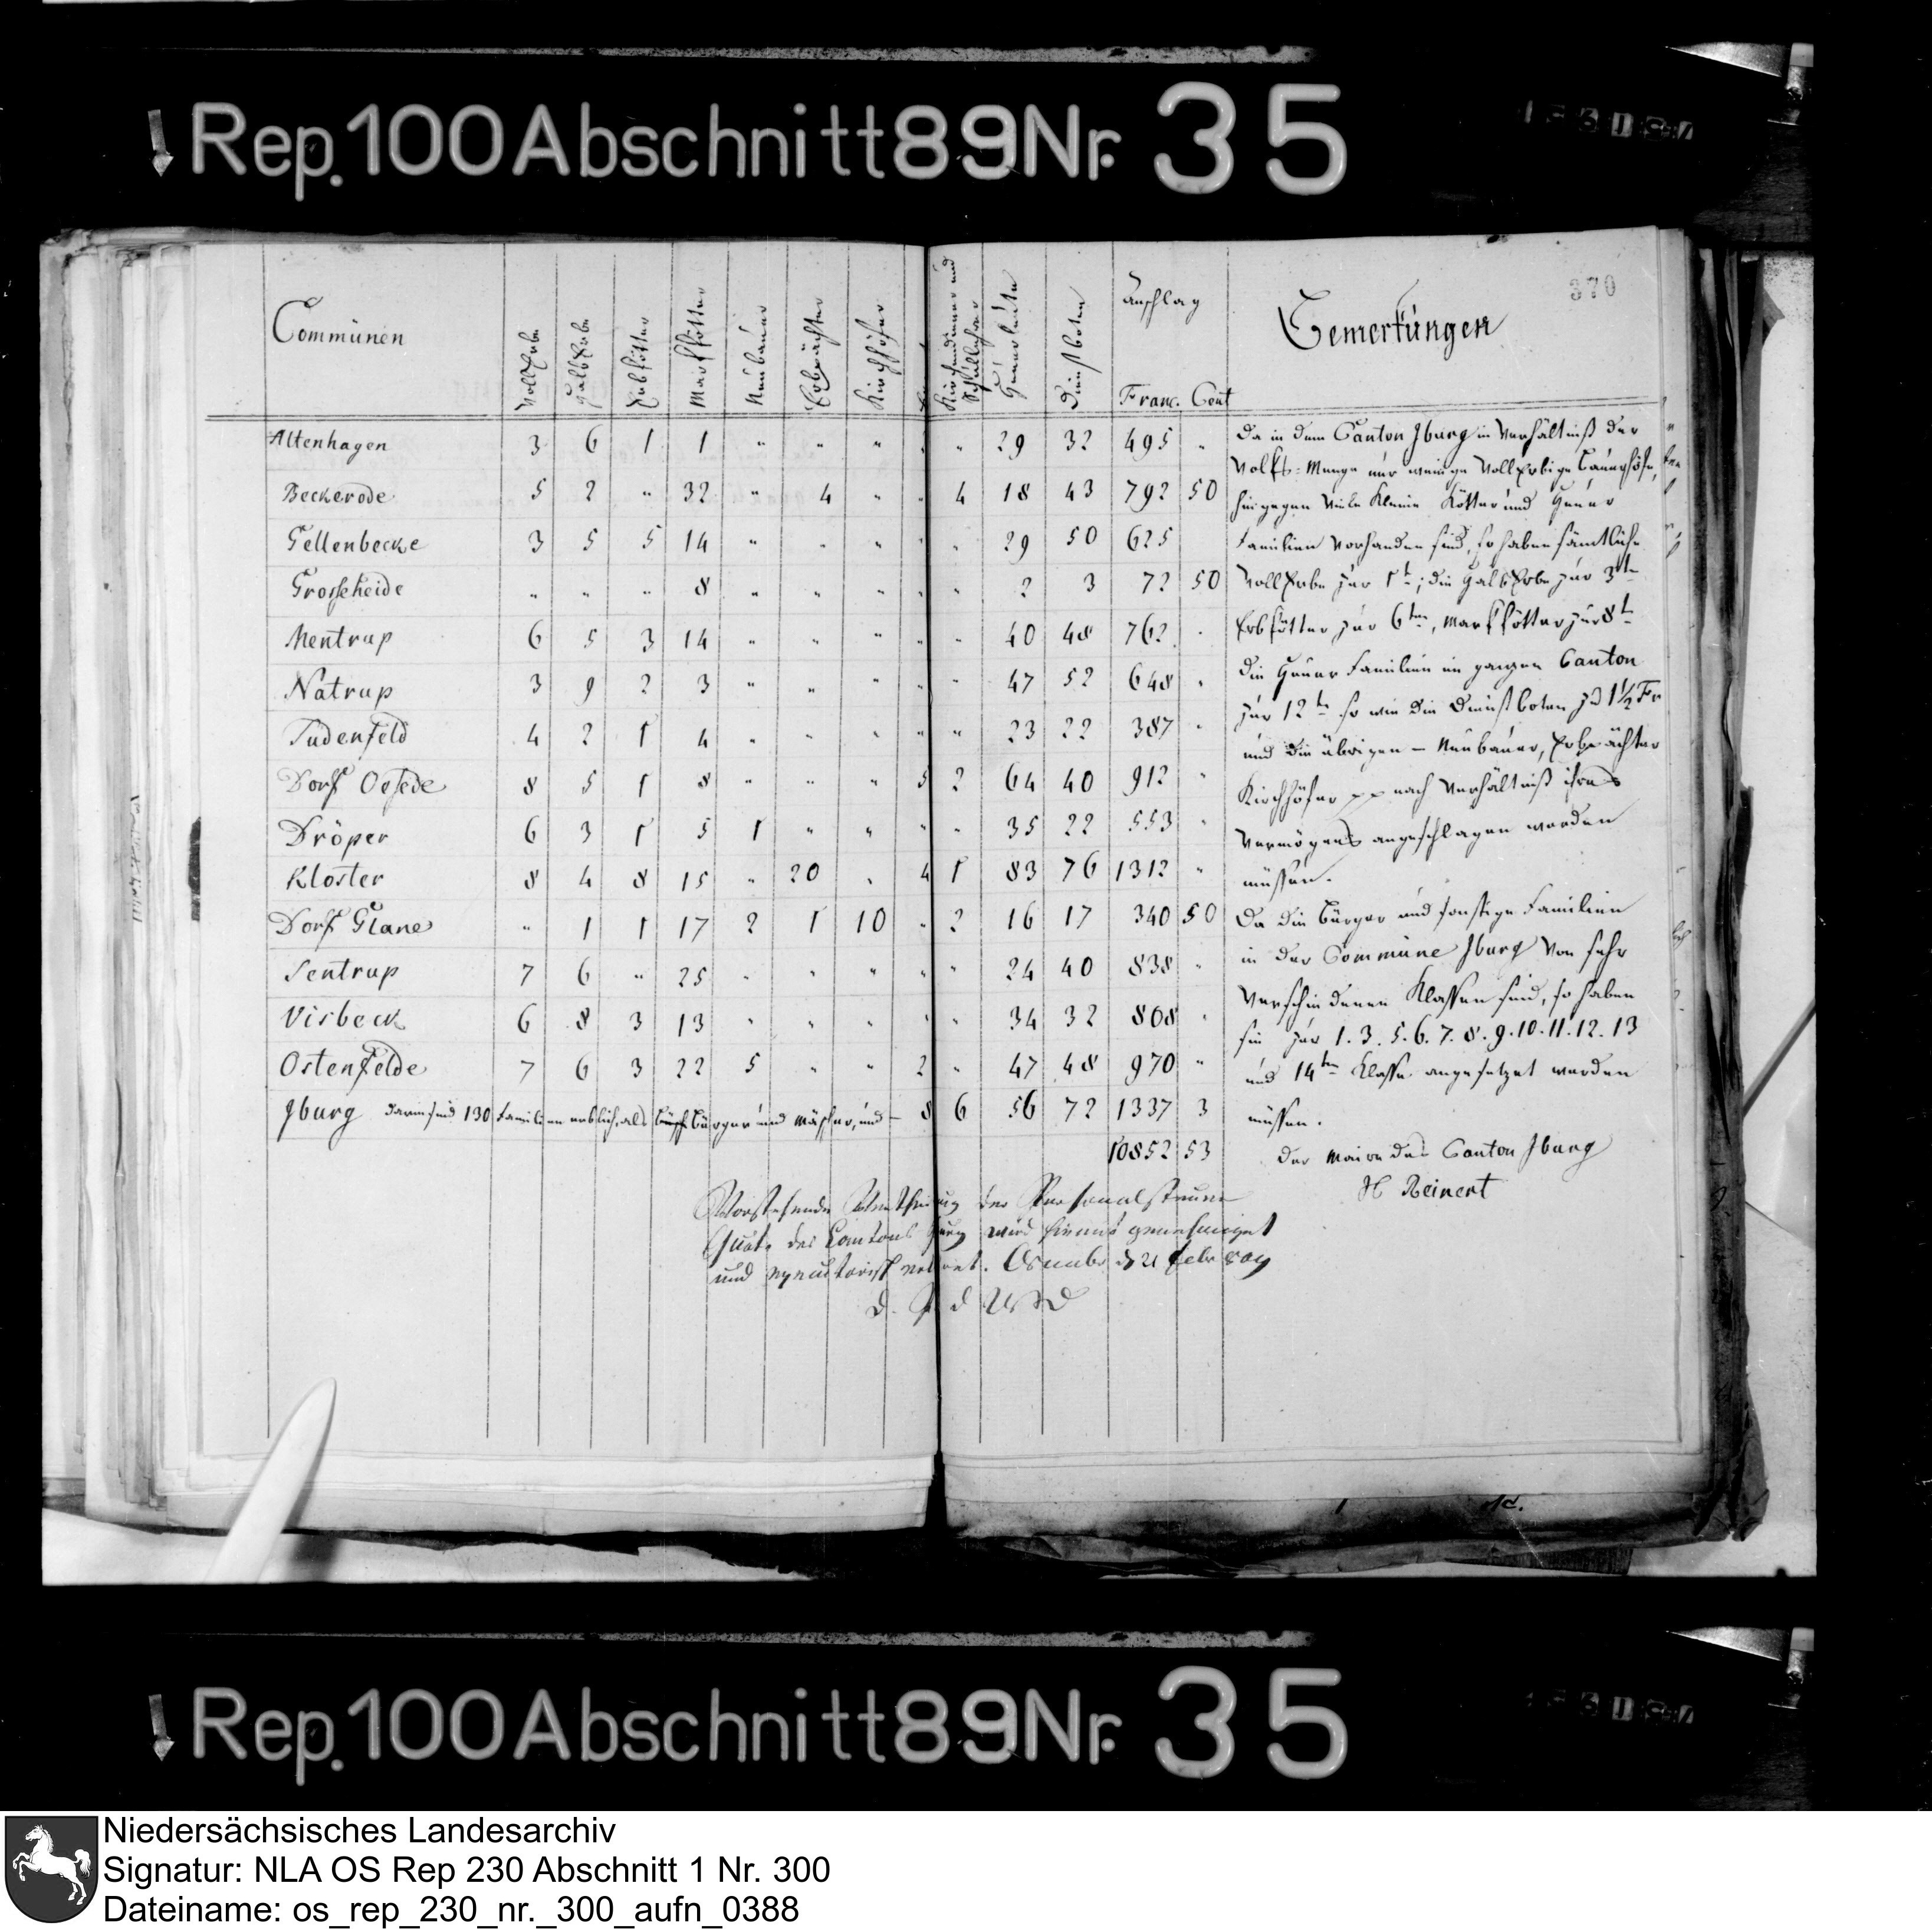 Rep. 100 Abschnitt 89 Nr. 35
370
Communen Vollerbe Halberbe Erbkötter Markkötter Neubauer Erbpächter Kirchhöfer Kirchendiener und Schullehrer Heuerleute Dienstboten Anschlag Bemerkungen
Franc. Cent
Altenhagen 3 6 1 1 " " " " 29 32 495 "
Beckerode 5 2 " 32 " 4 " " 4 18 43 792 50
Gellenbecke 3 5 5 14 " " " " " 29 50 625
Grosseheide " " " 8 " " " " " 2 3 72 50
Mentrup 6 5 3 14 " " " " " 40 48 762 "
Natrup 3 9 2 3 " " " " " 47 52 648 "
Sudenfeld 4 2 1 4 " " " " " 23 22 387 "
Dorf Oesede 8 5 1 8 " " " 5 2 64 40 912 "
Dröper 6 3 1 5 1 " " " " 35 22 553 "
Kloster 8 4 8 15 " 20 " 4 1 83 76 1312 "
Dorf Glane " 1 1 17 2 1 10 " 2 16 17 340 50
Sentrup 7 6 " 25 " " " " " 24 40 838 "
Visbeck 6 8 3 13 " " " " " 34 32 808 "
Ostenfelde 7 6 3 22 5 " " 2 " 47 48 970 "
Jburg darin sind 130 Familien erblich, als Bürger und und 8 6 56 72 1337 3
10852 53
Da in dem Canton Jburg in Verhältniß der
Volks-Menge nur wenige Vollerbige Bauerhöfe,
hingegen viele Kleine Kötter und Heuer
Familien vorhanden sind, so haben sämtliche
Vollerbe zur 1t; die Halberbe zur 3te
Erbkötter zur 6ten, Markkötter zur 8t
die Heuer Familien im ganzen Canton
zur 12te so wie die Dienstboten zu 1½ Fr
und die übrigen – Neubauer, Erbpächter
Kirchhöfer pp nach Verhältniß ihres
Vermögens angeschlagen werden
müssen.
Da die Bürger und sonstige Familien
in der Commüne Jburg von sehr
verschiedenen Klassen sind, so haben
sie zur 1. 3. 5. 6. 7. 8. 9. 10. 11. 12. 13
und 14ten Klasse angesetzet werden
müssen.
Der Maire des Canton Jburg
H Reinert
Vorstehende Vertheilung der Personalsteuer
Quote des Cantons Jburg wird hiemit genehmiget
und executorisch erklärt. Osnabr d 21 Febr 809
Rep. 100 Abschnitt 89 Nr. 35
Niedersächsisches Landesarchiv
Signatur: NLA OS Rep 230 Abschnitt 1 Nr. 300
Dateiname: os_rep_230_nr._300_aufn_0388